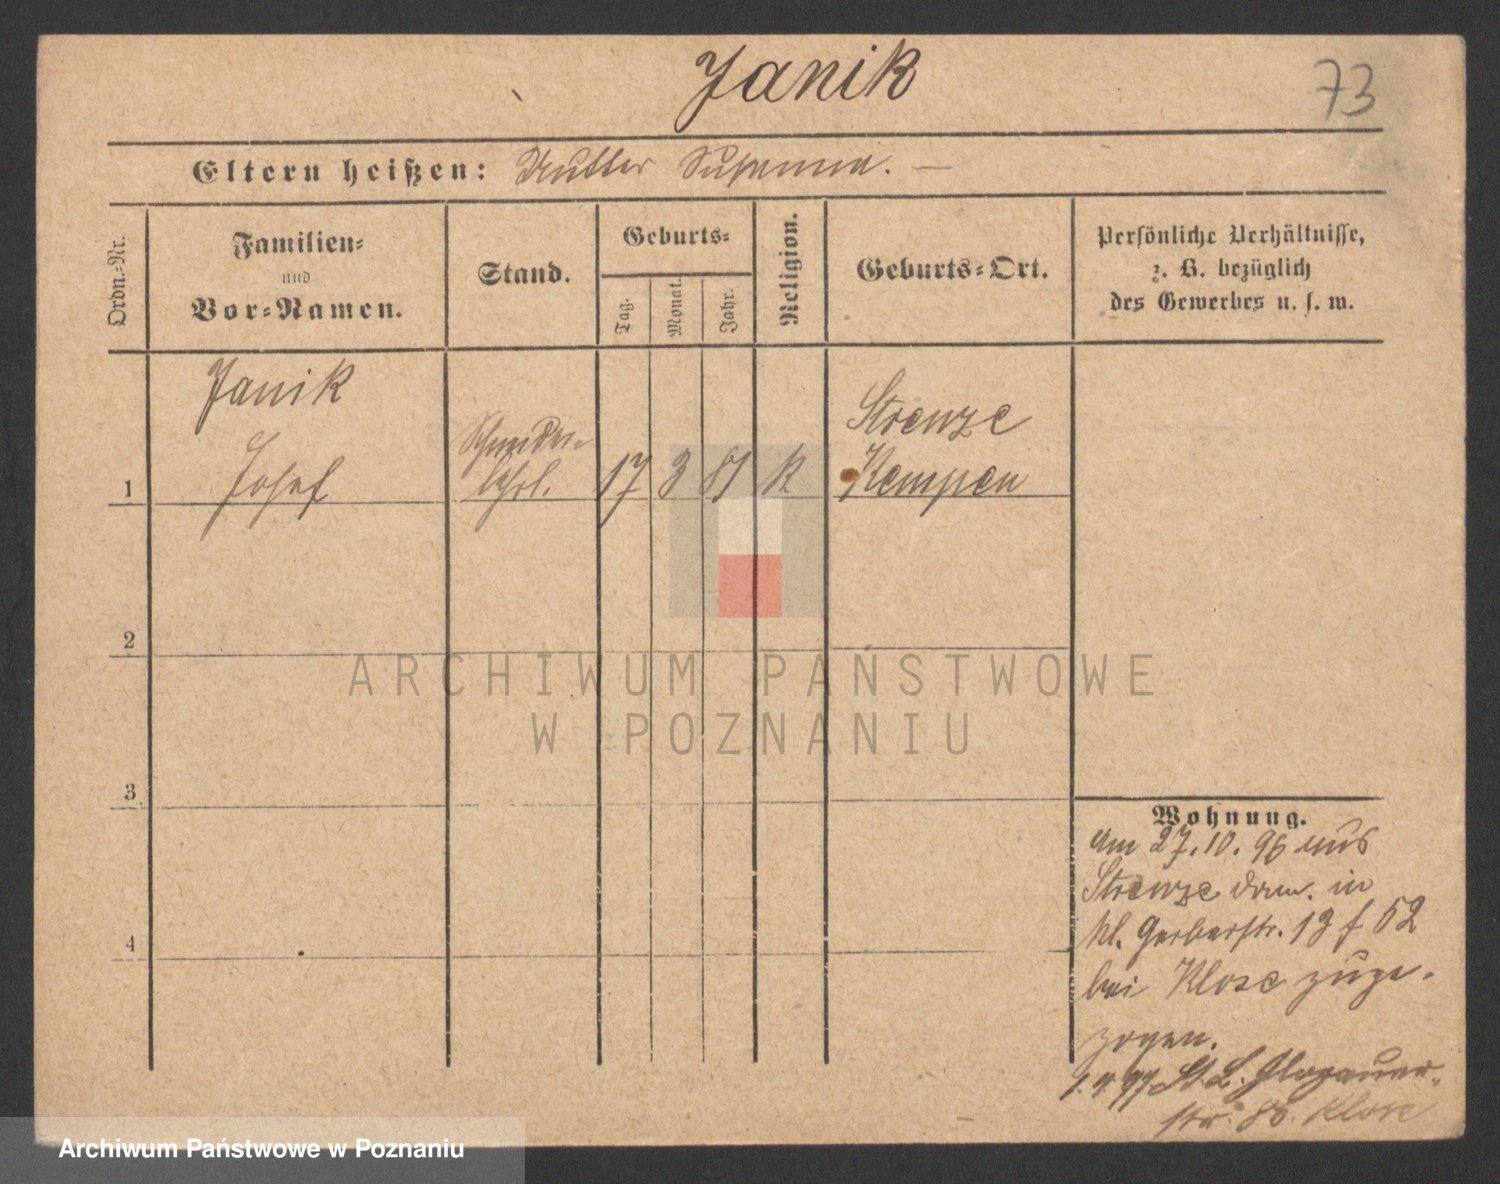 Janik
73
Eltern heißen: Mutter Susanna. —
Ordn.-Nr.
Familien-
und
Vor-Namen.
Stand.
Geburts-
Tag.
Monat.
Jahr.
Religion.
Geburts-Ort.
Persönliche Verhältnisse,
z. B. bezüglich
des Gewerbes u. s. w.
Janik
Josef
Schneider-
lehrl.
1
17 3 81 K
Strenze
Kempen
2
3
4
Wohnung.
am 27. 10. 96 aus
Strenze in
kl. Gerberstr. 13 f 52
bei Klose zuge-
zogen.
1. 4. 97 St. L. Glogauer-
str. 86. Klose
ARCHIWUM PAŃSTWOWE
W POZNANIU
Archiwum Państwowe w Poznaniu